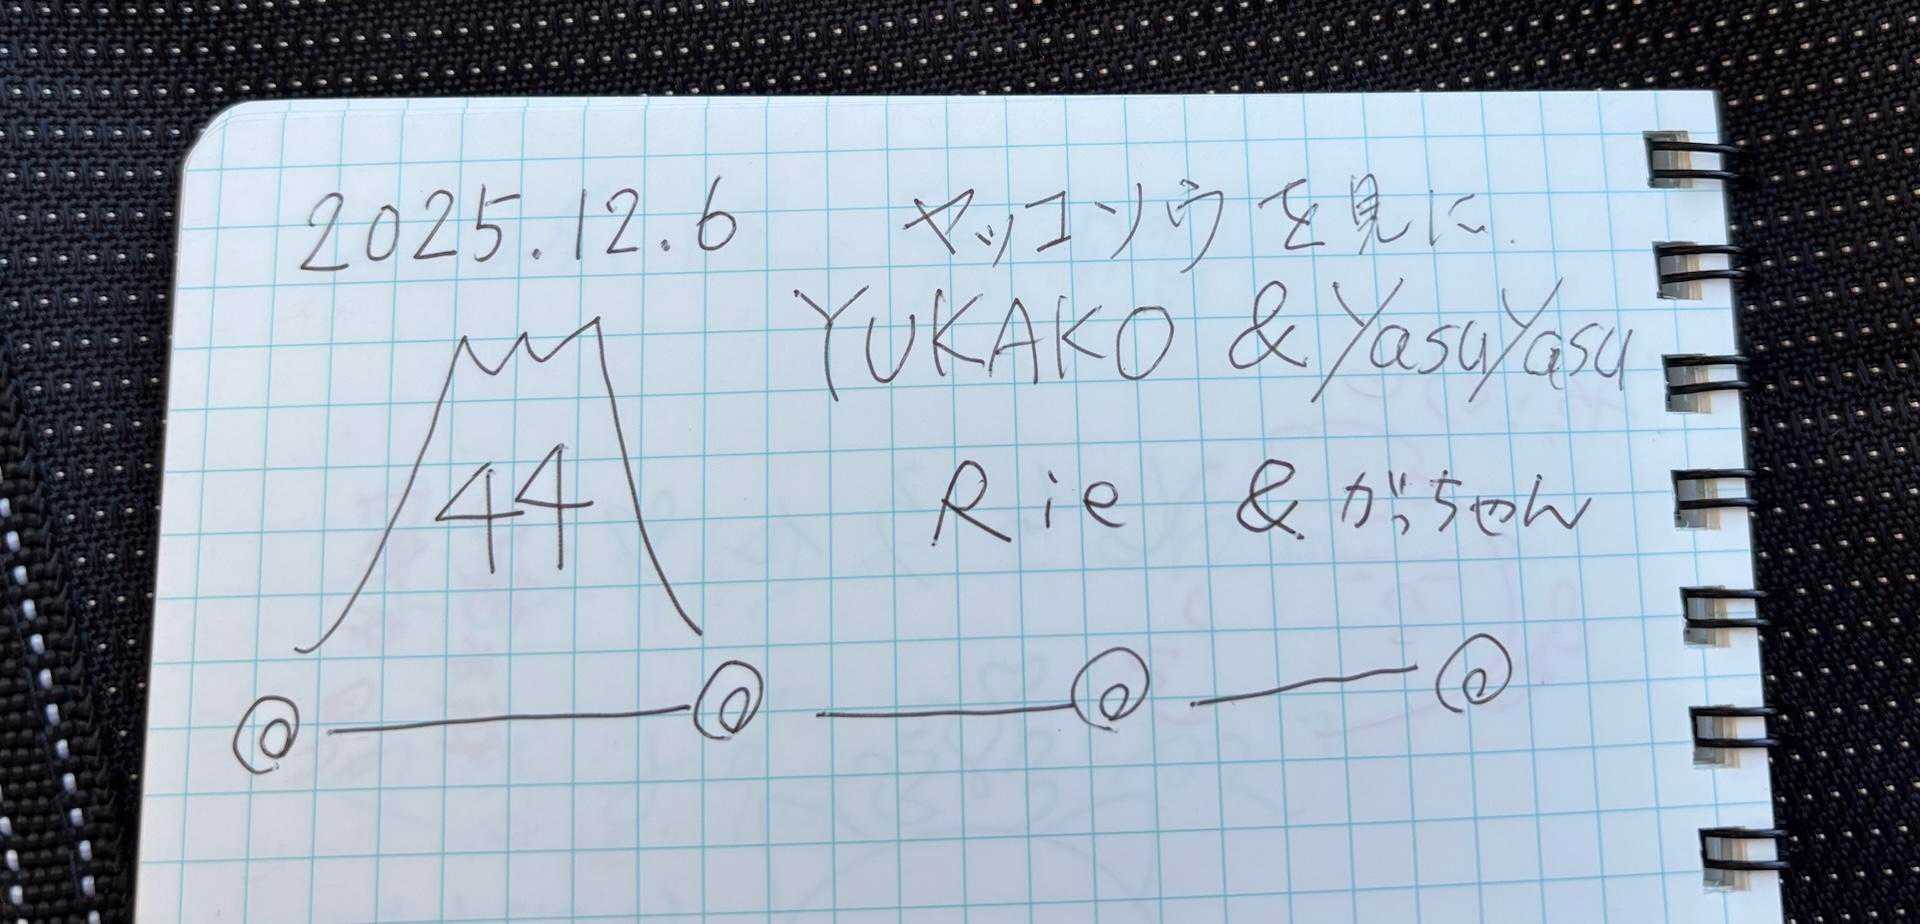 2025.12.6 ヤッコソウを見に.
YUKAKO & YasuYasu
44
Rie & がっちゃん